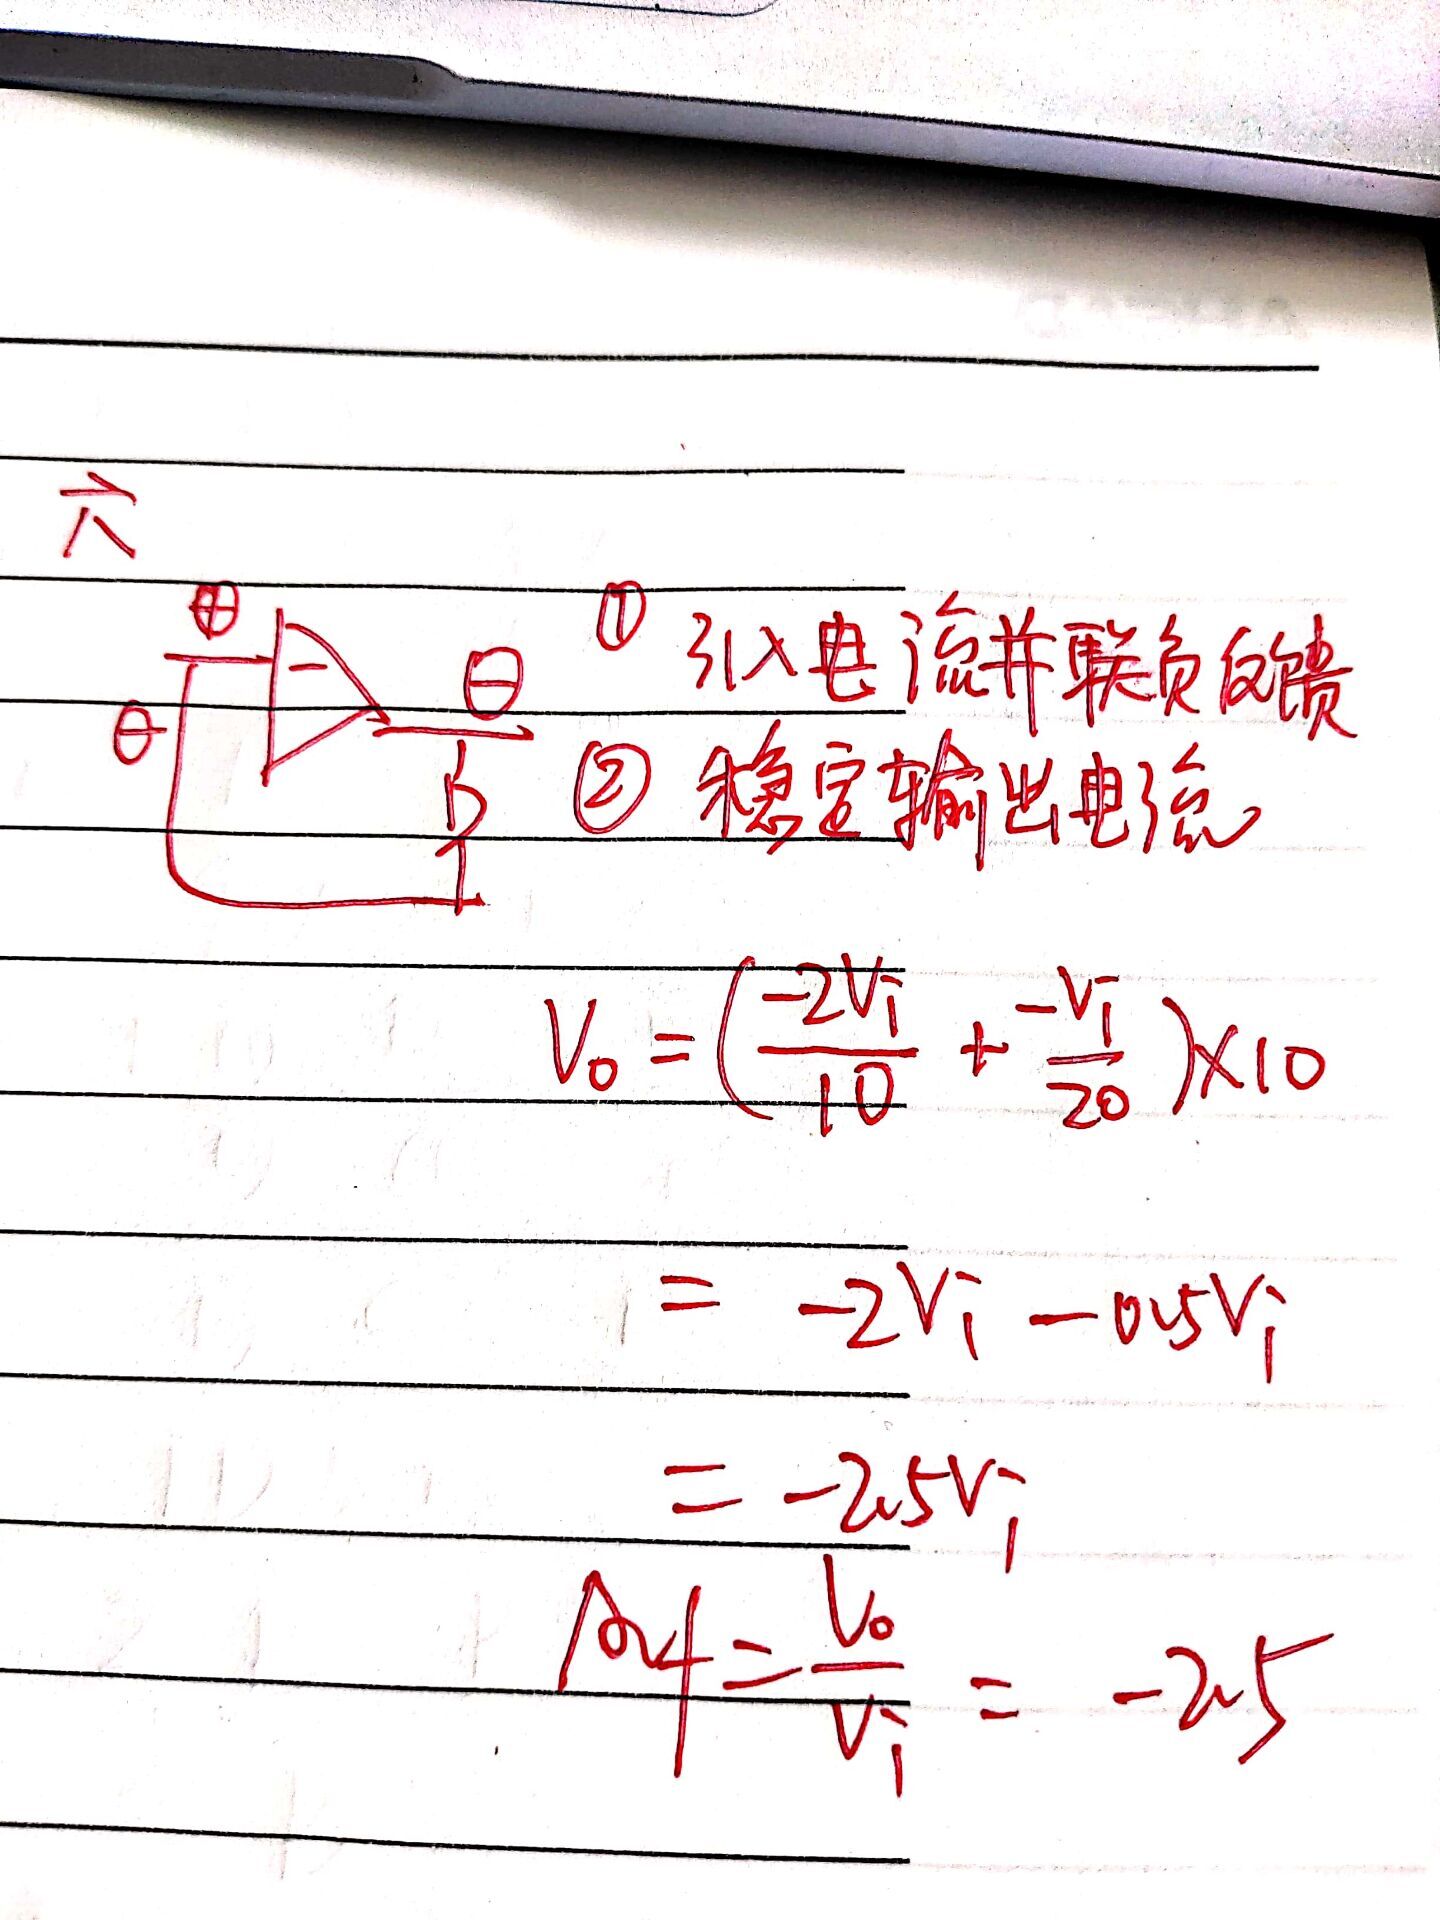 六
⊕ ① 引入电流并联负反馈
⊖ − ⊖ ② 稳定输出电流
V₀ = (-2Vi/10 + -Vi/20)×10
= -2Vi - 0.5Vi
= -2.5Vi
Avf = V₀/Vi = -2.5